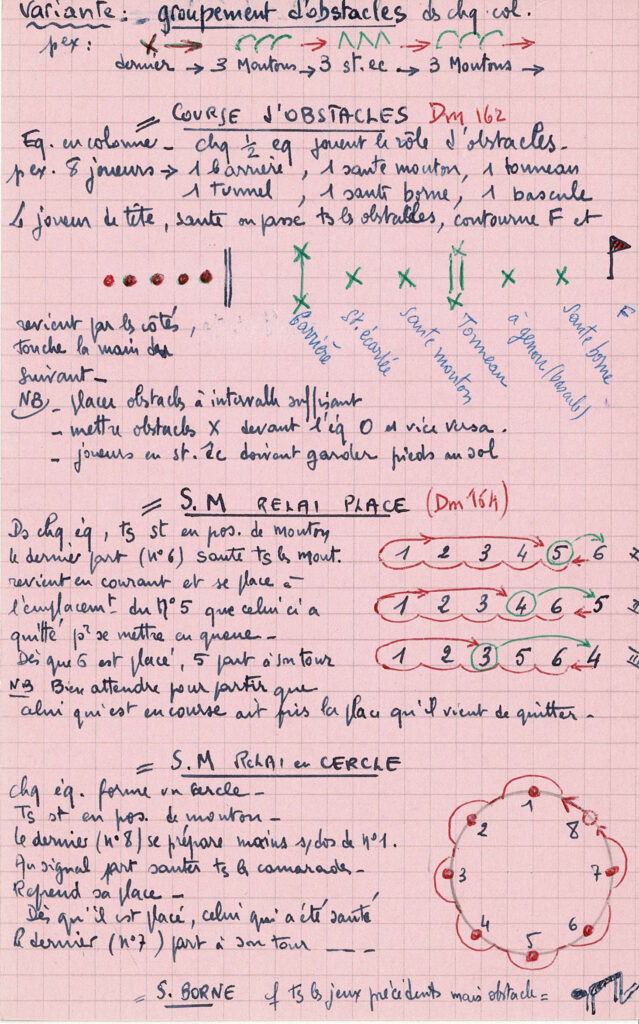 Variante : groupement d'obstacles ds chq col.
pex :
dernier → 3 Moutons → 3 st. ec → 3 Moutons →
= COURSE D'OBSTACLES Dm 162
Eq. en colonne - chq ½ eq jouent le rôle d'obstacles -
pex. 8 joueurs → 1 barrière, 1 saute mouton, 1 tonneau
1 tunnel, 1 saute borne, 1 bascule
Le joueur de tête, saute ou passe ts ls obstacles, contourne F et
F
barrière
st. écartée
saute mouton
Tonneau
à genou (bascule)
Saute borne
revient par ls côtés,
touche la main du
suivant -
NB - placer obstacles à intervalle suffisant
- mettre obstacles X devant l'éq O et vice versa.
- joueurs en st. éc doivent garder pieds au sol
= S. M RELAI PLACE (Dm 164)
Ds chq éq, ts st en pos. de mouton
le dernier part (n°6) saute ts ls mout.
revient en courant et se place à
l'emplacemt du N°5 que celui ci a
quitté pr se mettre en queue -
Dès que 6 est placé, 5 part à son tour
1 2 3 4 5 6
1 2 3 4 6 5
1 2 3 5 6 4
NB Bien attendre pour partir que
celui qui est en course ait pris la place qu'il vient de quitter -
= S. M RELAI en CERCLE
chq éq. forme un cercle -
Ts st en pos. de mouton -
le dernier (n°8) se prépare mains s/dos de n°1.
Au signal part sauter ts ls camarades -
Reprend sa place -
Dès qu'il est placé, celui qui a été sauté
le dernier (n°7) part à son tour
1 2 3 4 5 6 7 8
= S. BORNE ts ls jeux précédents mais obstacle =